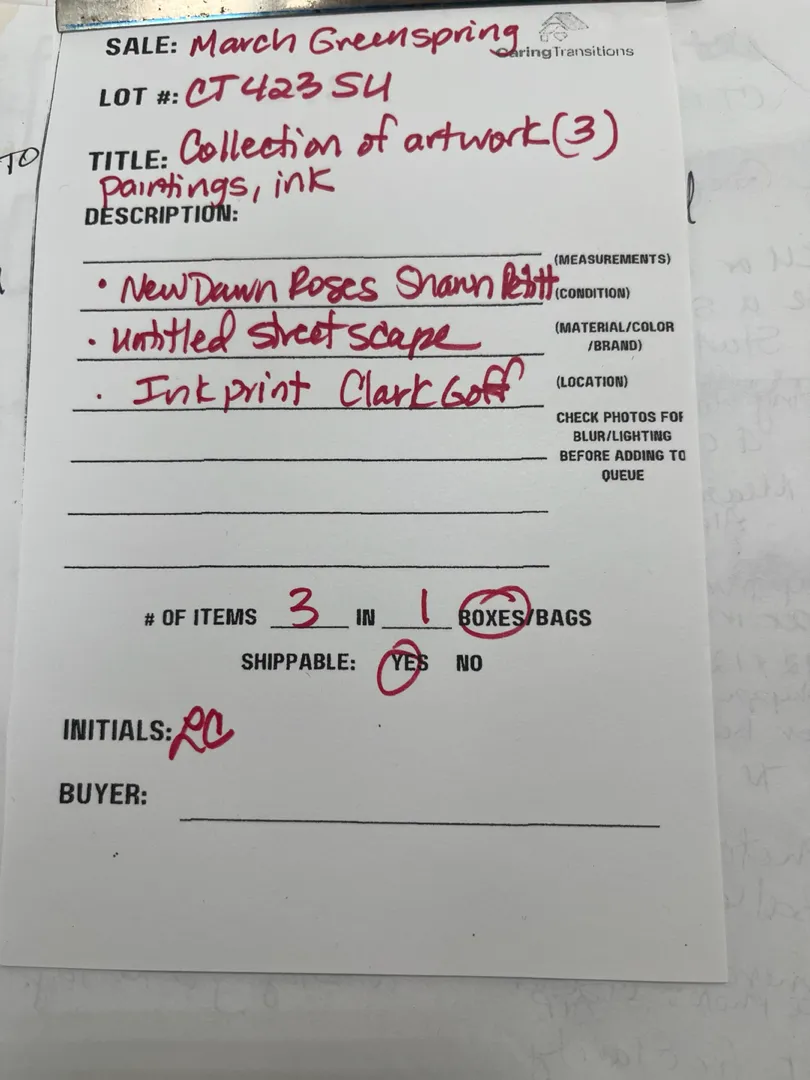 SALE: March Greenspring
CaringTransitions
LOT #: CT423SU
TO
TITLE: Collection of artwork (3)
paintings, ink
DESCRIPTION:
(MEASUREMENTS)
• New Dawn Roses Shawn
(CONDITION)
• untitled streetscape
(MATERIAL/COLOR
/BRAND)
• Ink print Clark Goff
(LOCATION)
CHECK PHOTOS FOR
BLUR/LIGHTING
BEFORE ADDING TO
QUEUE
# OF ITEMS 3 IN 1 BOXES/BAGS
SHIPPABLE: YES NO
INITIALS: RC
BUYER: